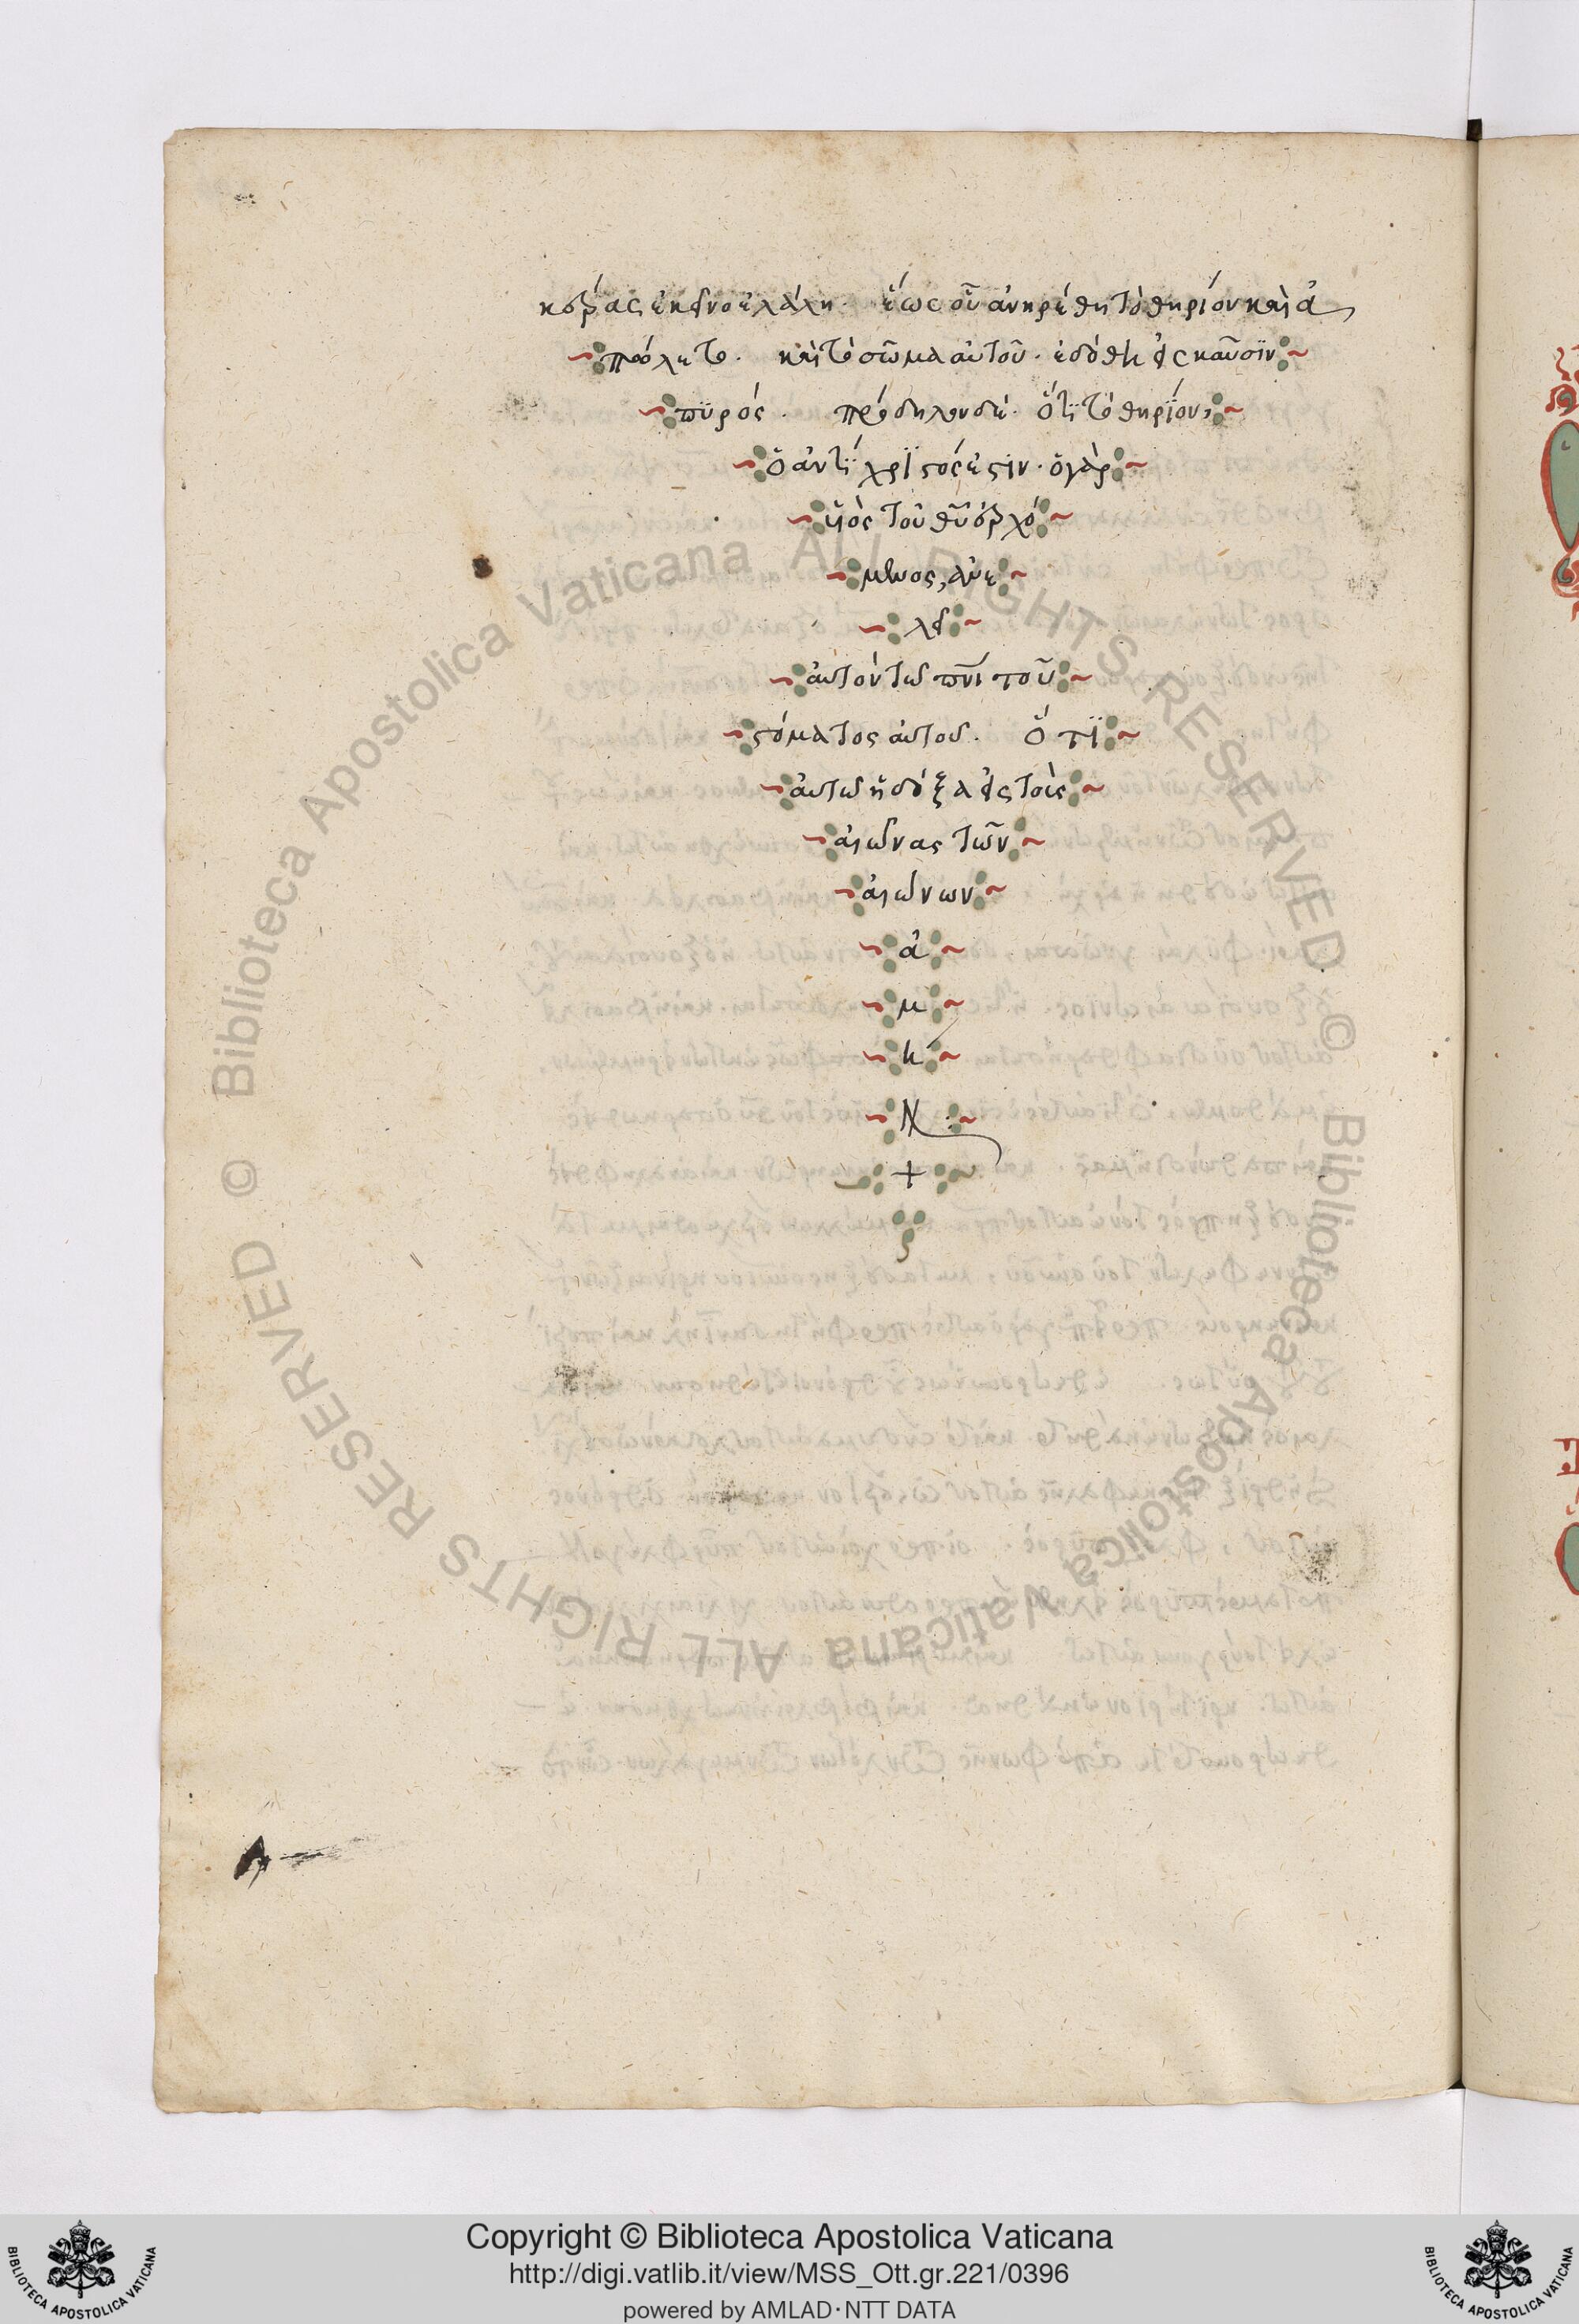 κέρας ἐκεῖνο ἐλάλη· ἕως οὗ ἀνηρέθη τὸ θηρίον καὶ ἀ
πόλετο· καὶ τὸ σῶμα αὐτοῦ· ἐδόθη εἰς καῦσϊν
πϋρός· πρόδηλον δὲ· ὅτϊ τὸ θηρϊόν,
ὁ ἀντΐχρϊστός ἐστϊν· ὁ γὰρ
ϋἱὸς τοῦ θῦ ἐρχό
μενος, ἀνε
λεῖ
αὐτὸν τῶ πνι τοῦ
στόματος αὐτοῦ· ὅτϊ
αὐτῶ ἡ δόξα εἰς τοὺς
αἰῶνας τῶν
αἰώνων
ἀ
μ
ή
ν
+
© Biblioteca Apostolica Vaticana ALL RIGHTS RESERVED © Biblioteca Apostolica Vaticana ALL RIGHTS RESERVED
Copyright © Biblioteca Apostolica Vaticana
http://digi.vatlib.it/view/MSS_Ott.gr.221/0396
powered by AMLAD·NTT DATA
BIBLIOTECA APOSTOLICA VATICANA
BIBLIOTECA APOSTOLICA VATICANA